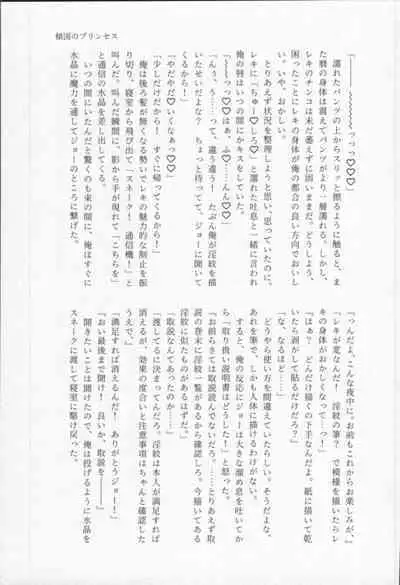 傾国のプリンセス
「～～～～～～っっっ♡♡♡」
濡れたパンツの上からスリ♡と擦るように触ると、ま
た麿の身体は震えてパンツがより一層濡れる。しかし、
困ったことにレキのチンコは未だ萎えずに固いままだ。どうしよう、
い。いや、おかしい。
とりあえず状況を整理しようと思い、思っていたのに、
レキに『ちゅー♡しろ♡』と濡れた吐息と一緒に言われ
俺の唇はいつの間にかキスをしていた。
「～～っ♡♡はぁ、ふ♡……んん♡♡」
「んぅ、う……って、違う違う！　たぶん俺が淫紋を描
いたせいだよな？　ちょっと待ってて、ジョーに聞いて
くるから！」
「やだやだ♡いくなぁっ♡♡」
「少しだけだから！　すぐに帰ってくるから！」
俺は後ろ髪が無くなる勢いでレキの魅力的な制止を振
り切り、寝室から飛び出て「スネーク！　通信機！」と
叫んだ。叫んだ瞬間に、影から手が現れて「こちらを」
と通信の水晶を差し出してくる。
いつの間にいたんだと驚くのも束の間に、俺はすぐに
水晶に魔力を通してジョーのところに繋げた。
『っんだよ、こんな夜中に。お前もこれからお楽しみが』
「レキが変なんだ！　淫紋の筆！　で模様を描いたらレ
キの身体がおかしくなって……っ！」
『はぁ？　どんだけ描くの下手なんだよ。紙に描いて乾
いたら剥がして貼るだけだろ？』
「な、なるほど……」
どうやら使い方を間違えていたらしい。そうだよな、
あれ筆で、しかも人体に描けるわけがない。
すると、俺の反応にジョーは大きな溜め息を吐いてか
ら『取り扱い説明書はどうした！』と怒った。
『お前らさては取説読んでないだろ。……とりあえず取
説の巻末に淫紋一覧があるから確認しろ。今描いてある
淫紋に似たものがあるはずだ』
「取説なんてあったのか……」
『渡してるに決まってんだろ。淫紋は本人が満足すれば
消えるが、効果の度合いと注意事項はちゃんと確認した
うえで』
「満足すれば消えるんだ！　ありがとうジョー！」
『おい最後まで聞け！　良いか、取説を――』
聞きたいことは聞けたので、俺は投げるように水晶を
スネークに渡して寝室に駆け戻った。